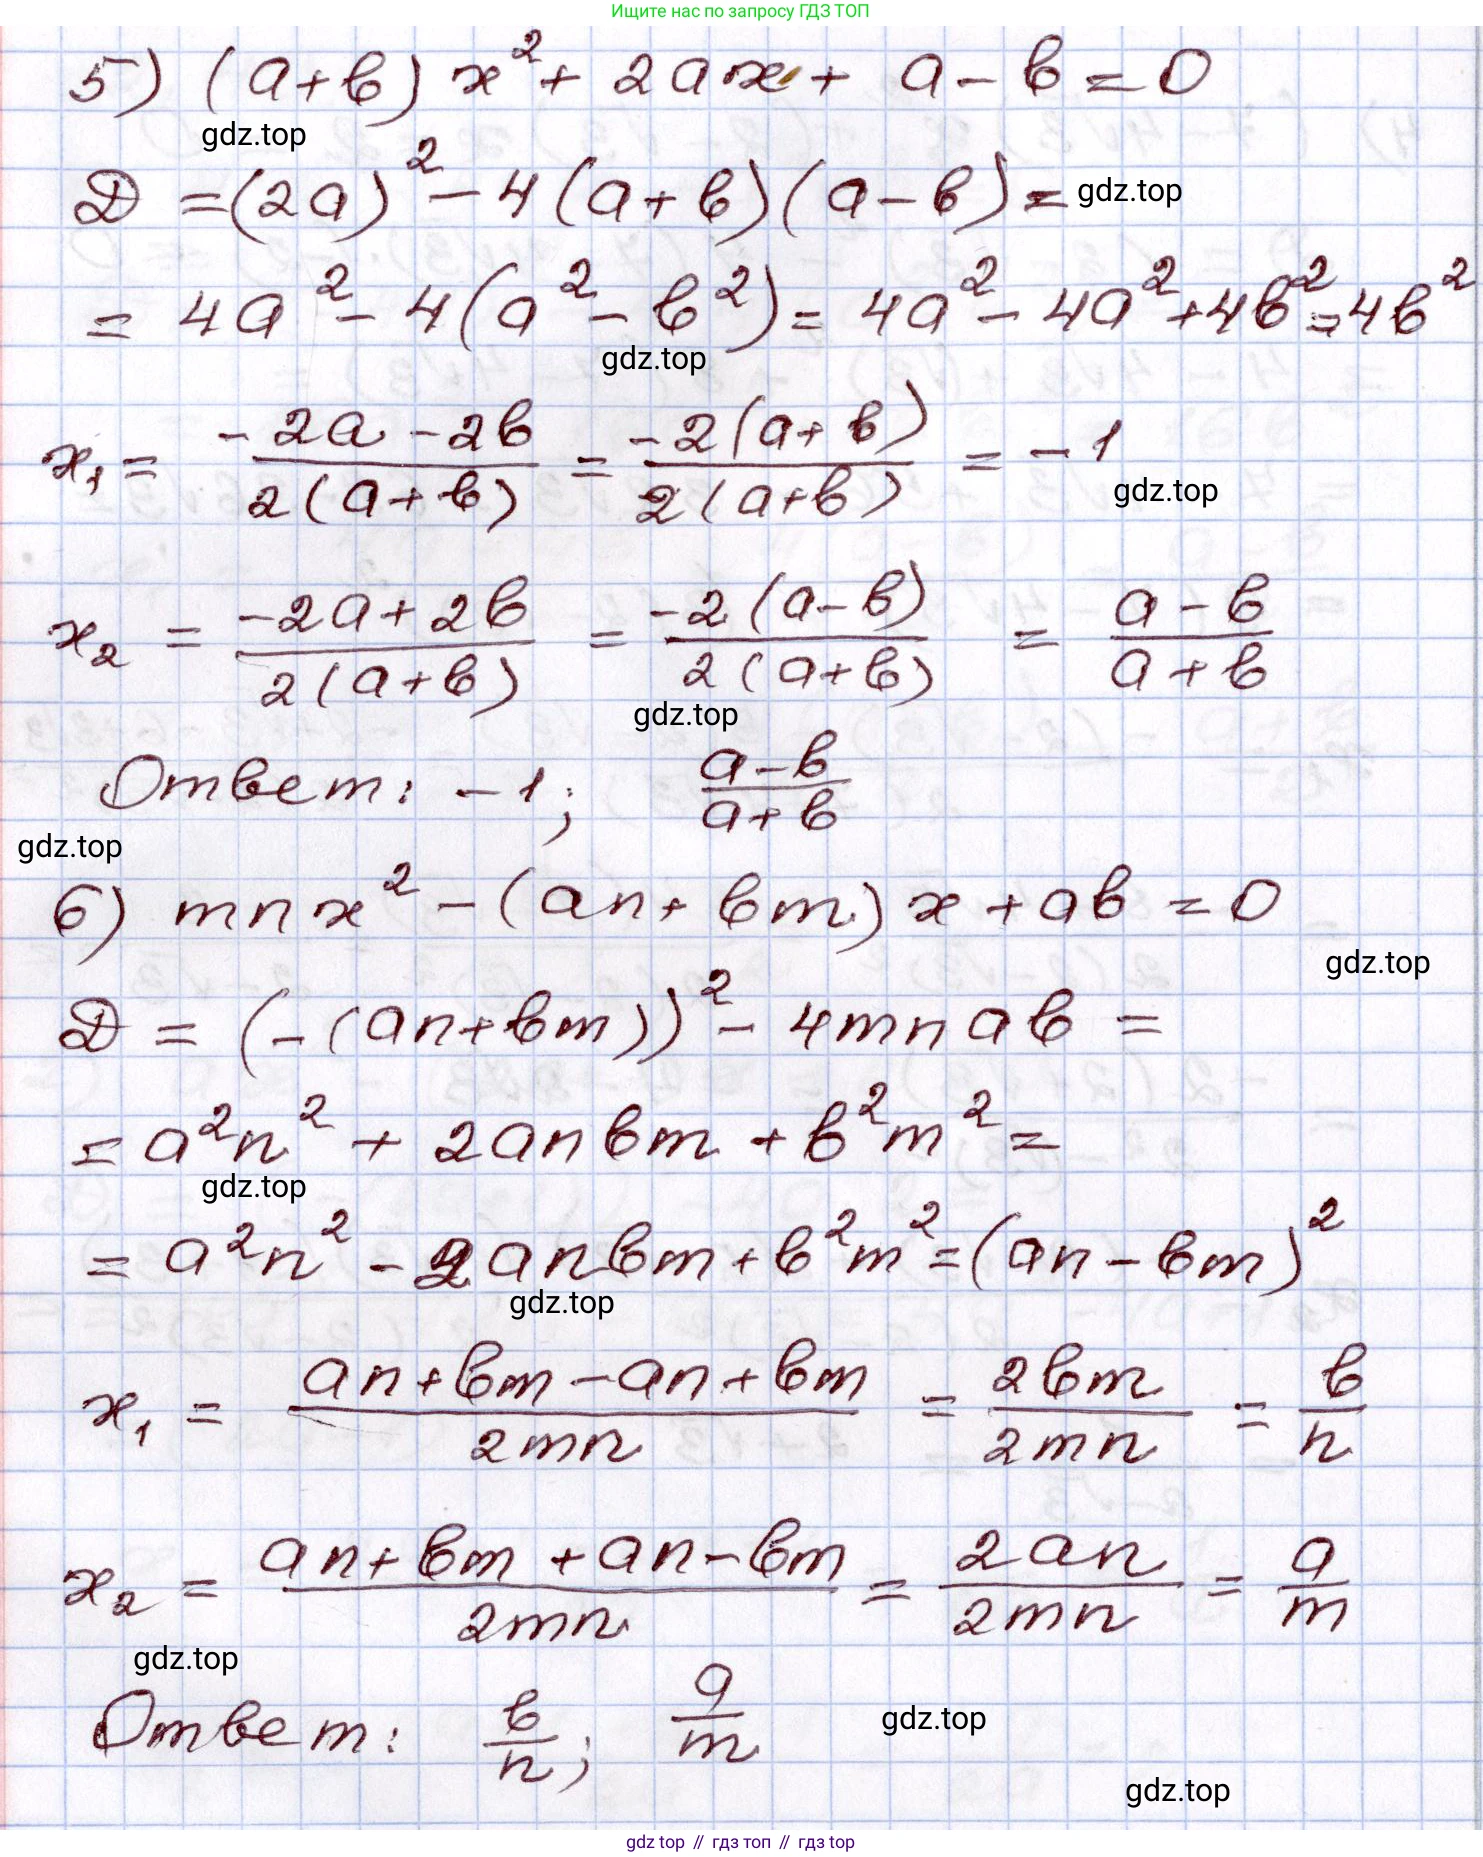 Ищите нас по запросу ГДЗ ТОП
5) (a+b)x² + 2ax + a - b = 0
gdz.top
D = (2a)² - 4(a+b)(a-b) =
gdz.top
= 4a² - 4(a² - b²) = 4a² - 4a² + 4b² = 4b²
gdz.top
x₁ = (-2a - 2b)/(2(a+b)) = (-2(a+b))/(2(a+b)) = -1
gdz.top
x₂ = (-2a + 2b)/(2(a+b)) = (-2(a-b))/(2(a+b)) = (a-b)/(a+b)
gdz.top
Ответ: -1; (a-b)/(a+b)
gdz.top
6) mnx² - (an + bm)x + ab = 0
gdz.top
D = (-(an+bm))² - 4mnab =
= a²n² + 2anbm + b²m² =
gdz.top
= a²n² - 2anbm + b²m² = (an - bm)²
gdz.top
x₁ = (an + bm - an + bm)/(2mn) = 2bm/2mn = b/n
x₂ = (an + bm + an - bm)/(2mn) = 2an/2mn = a/m
gdz.top
Ответ: b/n; a/m
gdz.top
gdz.top
gdz top // гдз топ // гдз top